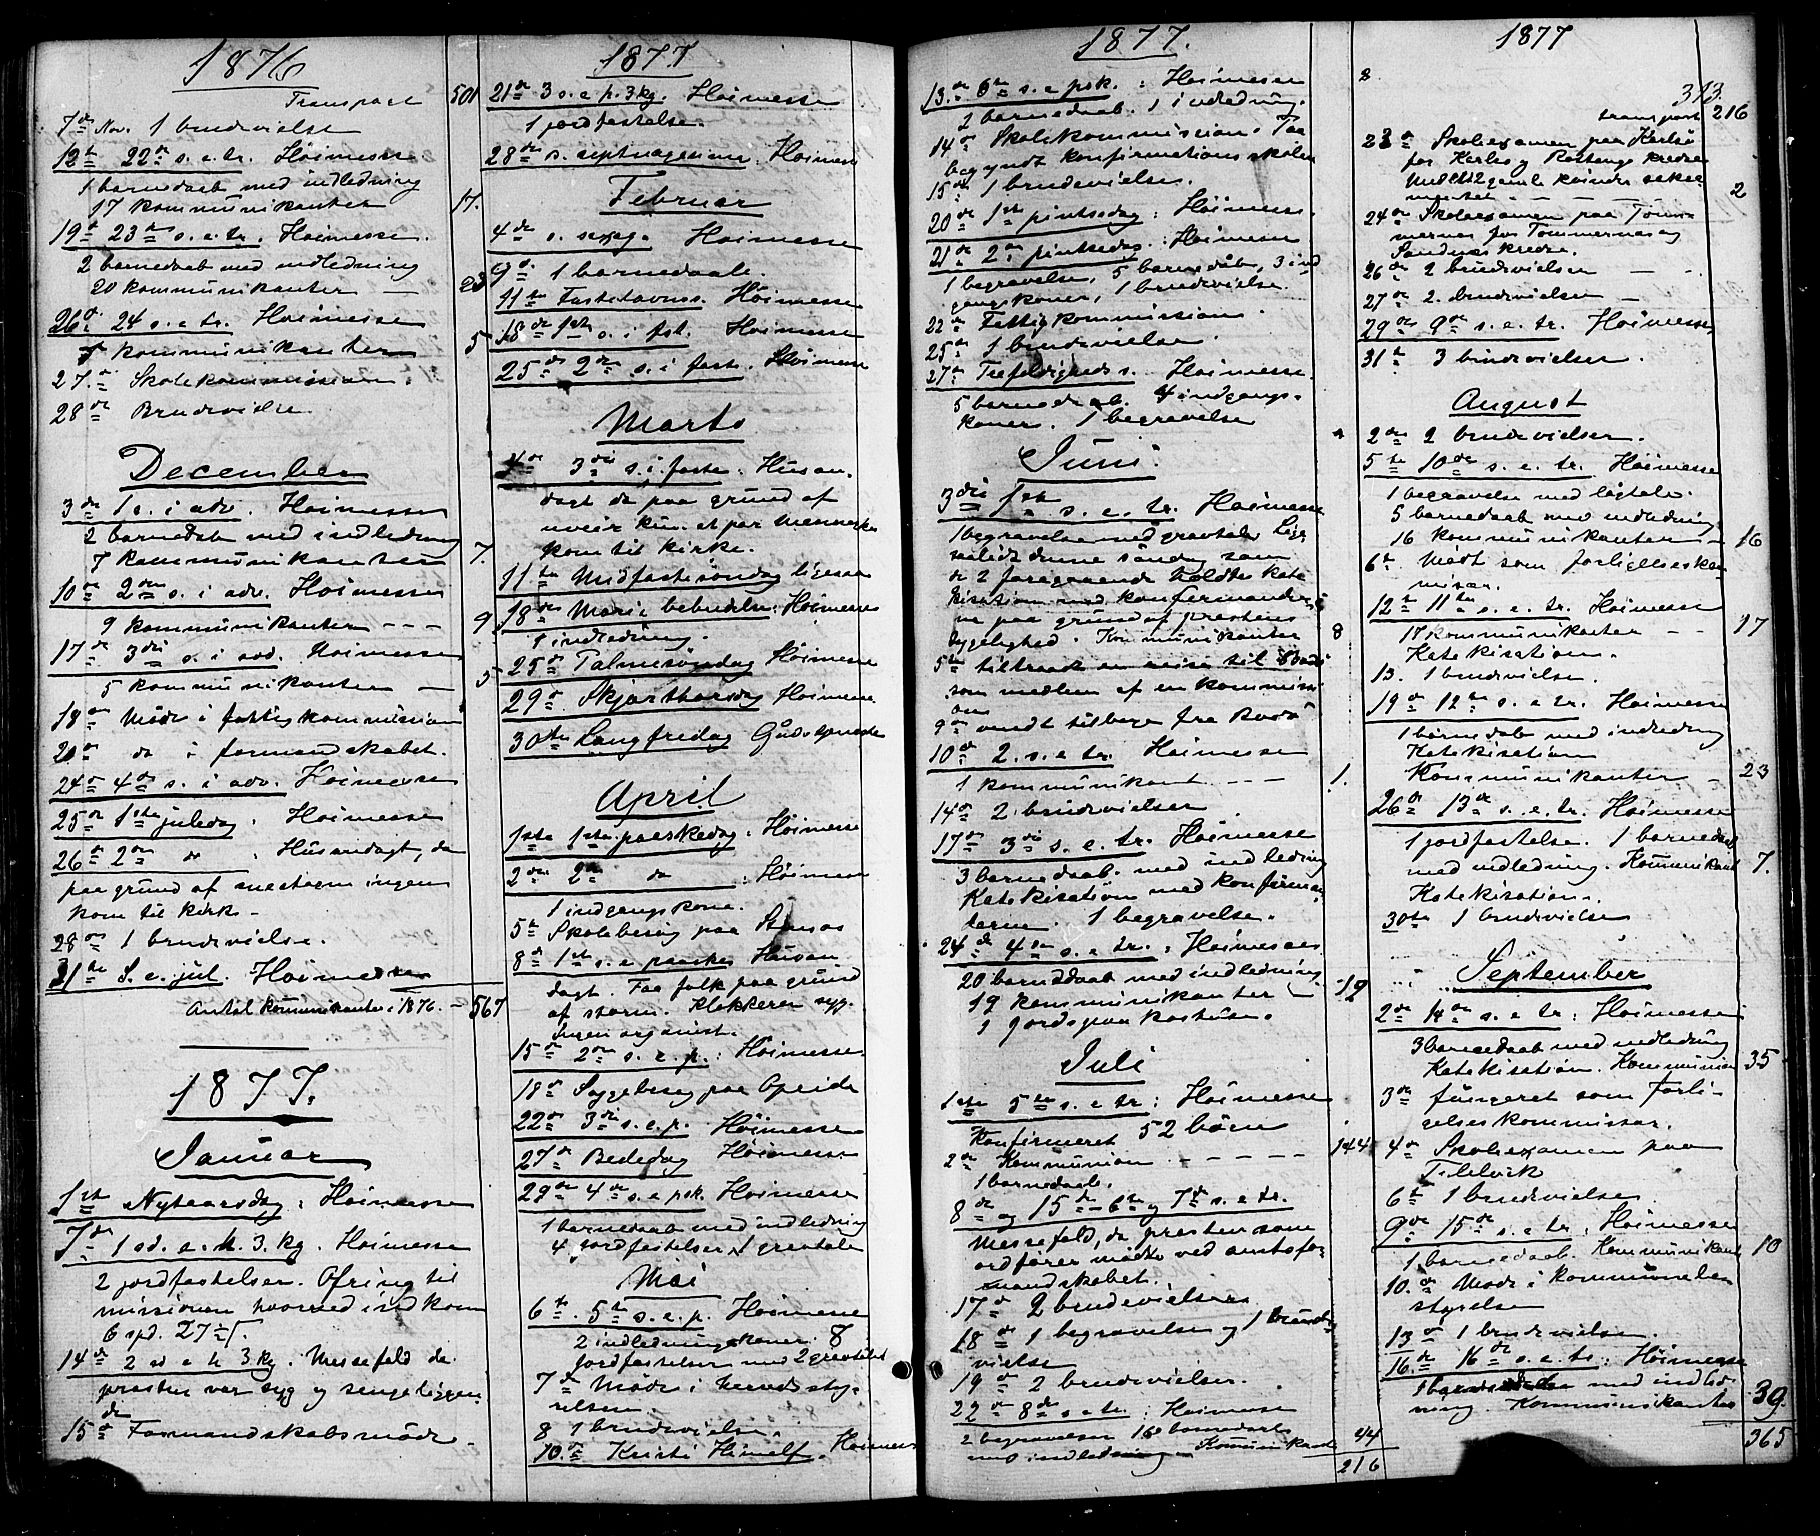 1876
Transport 501
7de Nov. 1 brudevielse
12te 22de s. e. tr. Höimesse
1 barnedaab med indledning
17 kommunikanter 17.
19de 23de s. e. tr. Höimesse.
2 barnedaab med indledning
20 kommunikanter — 23
26de 24 s. e. tr. Höimesse
5 kommunikanter 5
27. Skolekommission.
28de Brudevielse.
December
3de 1 s. i adv. Höimesse
2 barnedaab med indledning
7 kommunikanter 7.
10de 2den s. i adv. Höimesse
9 kommunikanter - - - 9
17de 3die s. i adv. Höimesse
5 kommunikanter — 5
18de Möde i fattigkommission
20de do i formandskabet.
24de 4de s. i adv. Höimesse
25de 1ste juledag : Höimesse
26de 2den do : Husandagt, da
paa grund af uveir ingen
kom til kirke -
28de 1 brudevielse.
31te S. e. jul. Höimesse
Antal kommunikanter i 1876. — 567
1877.
Januar
1ste Nytaarsdag : Höimesse
7de 1 sd. e. h. 3. kg. Höimesse
2 jordfæstelser. Ofring til
missionen hvorved indkom
6 spd. 27 s.
14de 2 sd e h 3 kg. Messefald da
presten var syg og sengeliggen-
de
15de Formandskabsmöde -
1877
21de 3 s. e. h. 3 kg. Höimesse
1 jordfæstelse.
28de s. septuagesima. Höimesse
Februar
4de s. sexag. Höimesse
9de 1 barnedaab.
11te Fastelavns s. Höimesse
18de 1ste s. i fst. Höimesse
25de 2den s. i faste. Höimesse
Marts
4de 3die s. i faste. Husan-
dagt da paa grund af
uveir kun et par mennesker
kom til kirke.
11te Midfastesöndag ligesaa
18de Mariæ bebudelse. Höimesse
1 indledning.
25de Palmesöndag Höimesse
29de Skjærthorsdag Höimesse
30te Langfredag Gudstjeneste
April
1ste 1ste paaskedag : Höimesse
2den 2den do : Höimesse
1 indgangskone.
5te Skolebesög paa
8de 1ste s. e paaske Husan-
dagt. Faa folk paa grund
af storm. Klokkeren syg.
Ingen organist.
15de 2den s. e. p. : Höimesse.
18de Sygebesög paa Opeide
22de 3die s. e. p. Höimesse
27de Bededag Höimesse
29de 4de s. e psk. Höimesse
1 barnedaab med indledning
4 jordfæstelser 1 gravtale
Mai
6te 5te s. e. p. Höimesse
2 indledningskoner. 8
jordfæstelser med 2 gravtaler
7de Möde i herredssty-
relsen.
8 1 brudevielse.
10de Kristi Himmelf. Höimesse
1877.
13de 6te s. e psk. : Höimesse
2 barnedaab. 1 indledning.
14de Skolekommission. Paa
begyndt konfirmationsskolen
15de 1 brudevielse.
20de 1ste pintsedag : Höimesse.
21de 2den pintsedag. : Höimesse
1 begravelse, 5 barnedåb, 3 ind
gangskoner, 1 brudevielse.
22de Fattigkommission.
25de 1 brudevielse.
27de Trefoldigheds s. Höimesse.
5 barnedaab. 4 indgangs-
koner. 1 begravelse
Juni.
3die 1ste s. e. tr. Höimesse
1 begravelse med gravtale. Lige
saalidt denne söndag som
de 2 foregaaende holdtes kate
kisation med konfirmander-
ne paa grund af prestens
sygelighed. Kommunikanter 8
5te tiltraadt en reise til Bodö
som medlem af en kommissi
on
9de vendt tilbage fra Bodö
10de 2. s. e. tr. Höimesse
1 kommunikant - - - 1.
14de 2 brudevielser
17de 3die s. e. tr. Höimesse
3 barnedaab med indledning
Katekisation med konfirman-
derne. 1 begravelse.
24de 4de s. e. tr. : Höimesse
20 barnedaab med indledning
19 kommunikanter — 19
1 jordspaakastelse.
Juli
1ste 5te s. e tr : Höimesse
Konfirmeret 52 börn
2de Kommunion - - - - - 144
1 barnedaab.
8de og 15de - 6te og 7de s. e. tr.
Messefald, da presten som
ordförer mödte ved amtsfor-
mandskabet.
17de 2 brudevielser
18de 1 begravelse og 1 brude-
vielse
19de 2 brudevielser.
22de 8de s. e tr. : Höimesse
2 begravelser 16 barnedaab
med indledning - Kommunikanter 44
216
1877
313.
transport 216
23de Skoleexamen paa Kerlsö
for Kerlsö og kredse
- - - 2
24de Skoleexamen paa Töm-
mernes for Tömmernes og
Sandnes kredse.
26de 2 brudevielser — —
27de 2. brudevielser —
29de 9de s. e. tr. Höimesse
31te 3 brudevielser.
August
2den 2 brudevielser.
5te 10de s. e. tr. Höimesse
1 begravelse med ligtale.
5 barnedaab med indledning
16 kommunikanter - 16
6te Mödt som forligelseskom-
missær.
12te 11te s. e. tr. Höimesse
17 kommunikanter - - 17
Katekisation.
13. 1 brudevielse.
19de 12te s. e tr. Höimesse
1 barnedaab med indledning
Katekisation
Kommunikanter - 23
26de 13de s. e. tr. Höimesse
1 jordfæstelse. 1 barnedaab
med indledning. Kommunikant 7.
Katekisation.
30te 1 brudevielse
September
2den 14de s. e tr. : Höimesse
3 barnedaab med indledning
Katekisation. Kommunion 35
3de fungeret som forli-
gelseskommissær.
4de Skoleexamen paa
6te 1 brudevielse
9de 15de s. e. tr. : Höimesse
1 barnedaab. Kommunikant 10
10de Möde i kommunebe
styrelse
13de 1 brudevielse.
16de 16de s. e. tr. : Höimesse
1 barnedaab med indled-
ning. Kommunikanter 39.
365